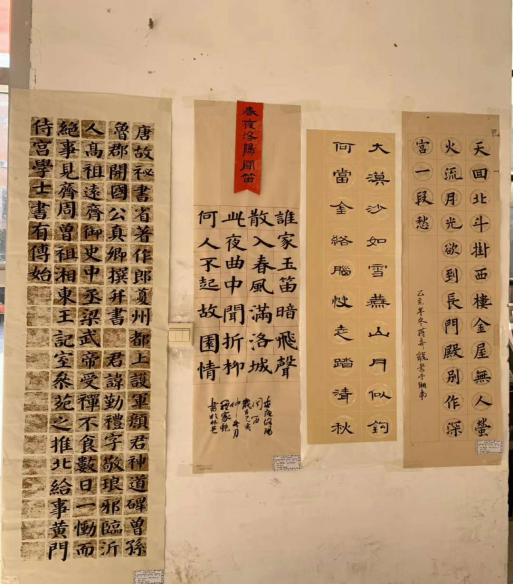 天回北斗掛西樓金屋無人螢
火流月光欲到長門殿別作深
宮一段愁
大漠沙如雪燕山月似鉤
何當金絡腦快走踏清秋
春夜洛陽聞笛
誰家玉笛暗飛聲
散入春風滿洛城
此夜曲中聞折柳
何人不起故園情
唐故祕書省著作郎夔州都上護軍顏君神道碑曾孫
魯郡開國公真卿撰并書 君諱勤禮字敬琅邪臨沂
人高祖遠齊御史中丞梁武帝受禪不食數日一慟而
絕事見齊周曾祖湘東王記室叅苑之推北給事黃門
侍宮學士書有傳始